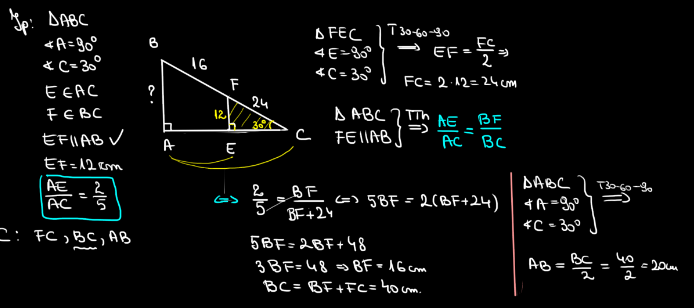 Ip: △ABC
∢A=90°
∢C=30°
E∈AC
F∈BC
EF∥AB ✓
EF=12cm
AE/AC = 2/5
C: FC, BC, AB
B
16
F
24
?
12
30°
A
E
C
△FEC
∢E=90°
∢C=30°
T30-60-90
⟹ EF = FC/2 ⇒
FC = 2·12 = 24cm
△ABC
FE∥AB
TTh
⟹ AE/AC = BF/BC
⇔ 2/5 = BF/BF+24 ⇔ 5BF = 2(BF+24)
5BF = 2BF+48
3BF = 48 ⇒ BF = 16cm
BC = BF+FC = 40cm.
△ABC
∢A=90°
∢C=30°
T30-60-90
⟹
AB = BC/2 = 40/2 = 20cm